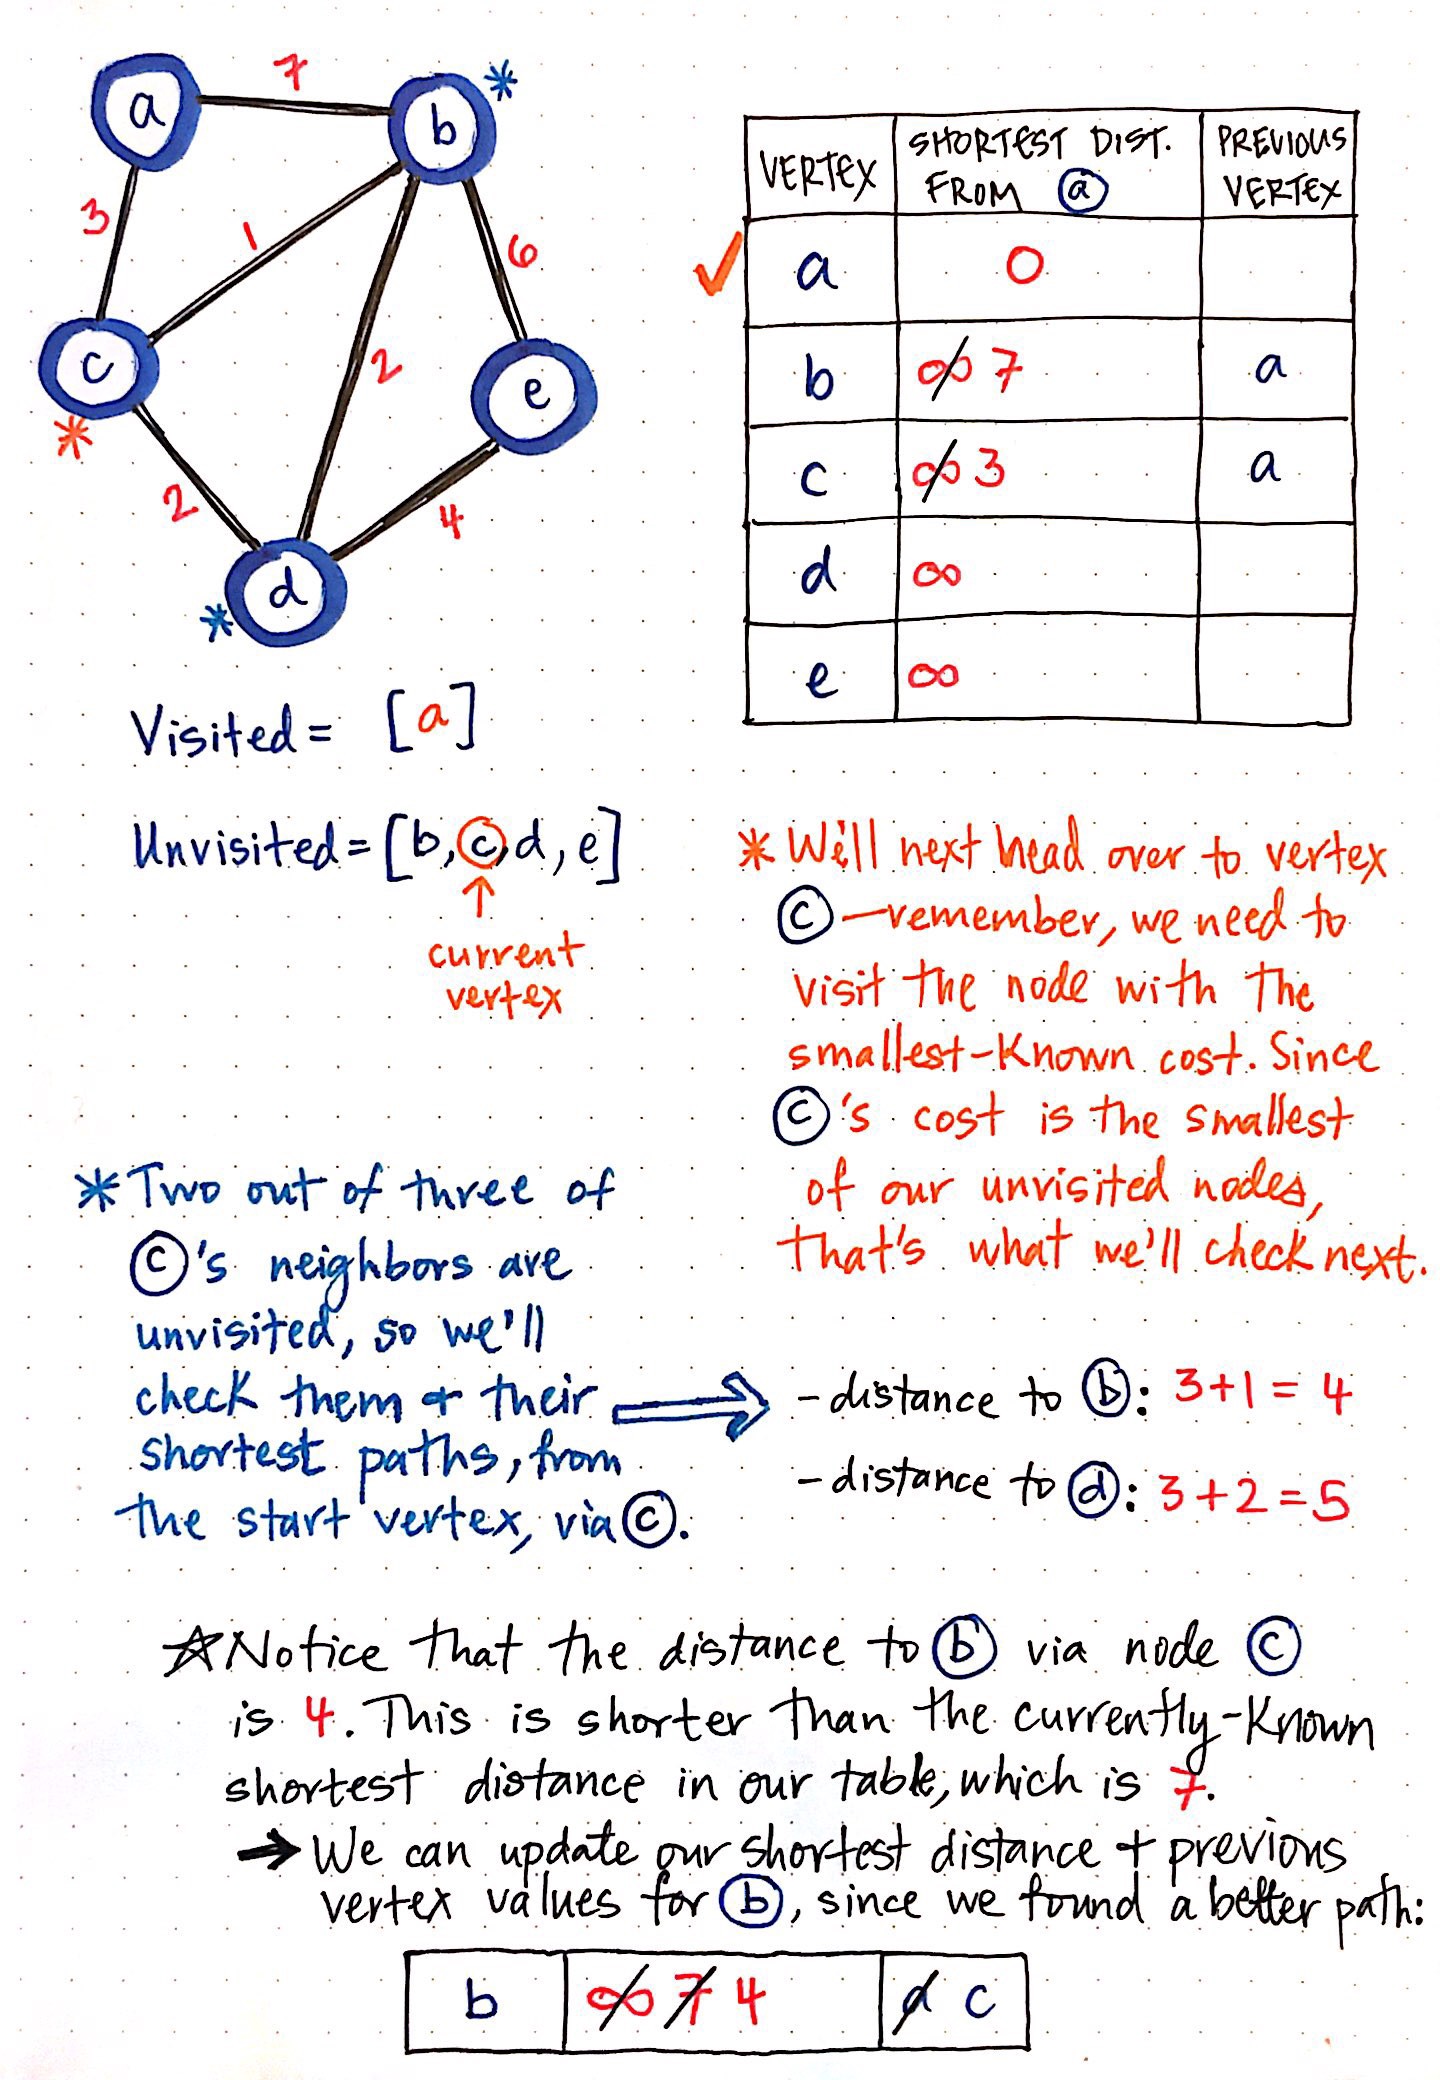 a
7
b
*
3
1
6
2
c
*
e
2
4
d
*
VERTEX
SHORTEST DIST.
FROM ⓐ
PREVIOUS
VERTEX
✓ a 0
b ∞ 7 a
c ∞ 3 a
d ∞
e ∞
Visited = [a]
Unvisited = [b, c, d, e]
↑
current
vertex
* We'll next head over to vertex
ⓒ—remember, we need to
visit the node with the
smallest-known cost. Since
ⓒ's cost is the smallest
of our unvisited nodes,
that's what we'll check next.
* Two out of three of
ⓒ's neighbors are
unvisited, so we'll
check them + their
shortest paths, from
the start vertex, via ⓒ.
- distance to ⓑ: 3+1 = 4
- distance to ⓓ: 3+2 = 5
☆ Notice that the distance to ⓑ via node ⓒ
is 4. This is shorter than the currently-known
shortest distance in our table, which is 7.
→ We can update our shortest distance + previous
vertex values for ⓑ, since we found a better path:
b ∞ 7 4 a c